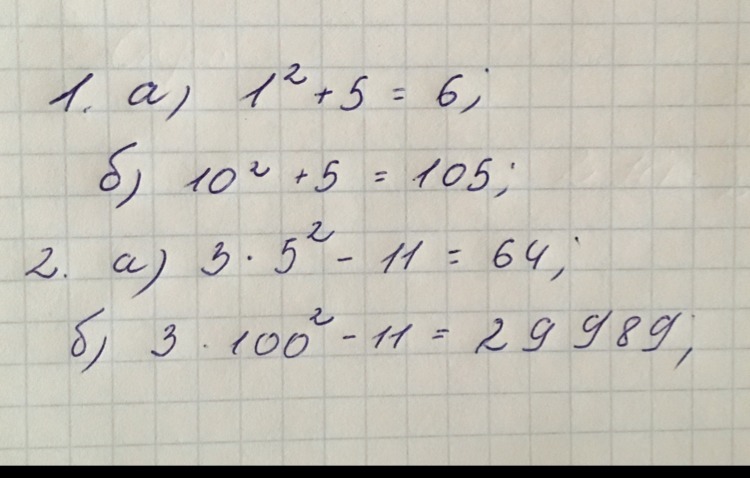 1. а) 1² + 5 = 6;
б) 10² + 5 = 105;
2. а) 3 · 5² - 11 = 64;
б) 3 · 100² - 11 = 29 989;